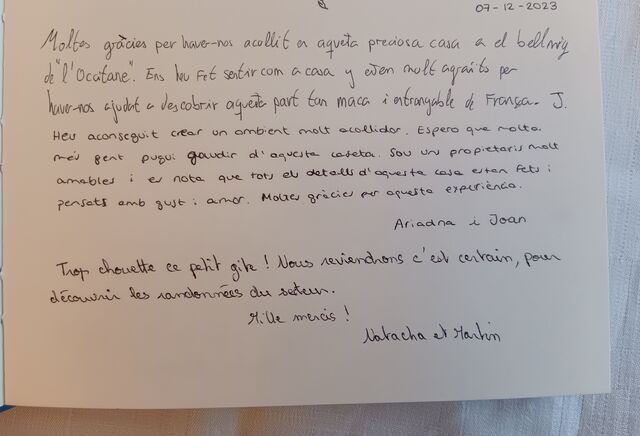 07-12-2023
Moltes gràcies per haver-nos acollit en aquesta preciosa casa a el bell mig
de "l'Occitane". Ens heu fet sentir com a casa y estem molt agraïts per
haver-nos ajudat a descobrir aquesta part tan maca i entranyable de França. J.
Heu aconseguit crear un ambient molt acollidor. Espero que molta
més gent pugui gaudir d'aquesta caseta. Sou uns propietaris molt
amables i es nota que tots els detalls d'aquesta casa estan fets i
pensats amb gust i amor. Moltes gràcies per aquesta experiència.
Ariadna i Joan
Trop chouette ce petit gite ! Nous reviendrons c'est certain, pour
découvrir les randonnées du secteur.
Mille mercis !
Natacha et Martin